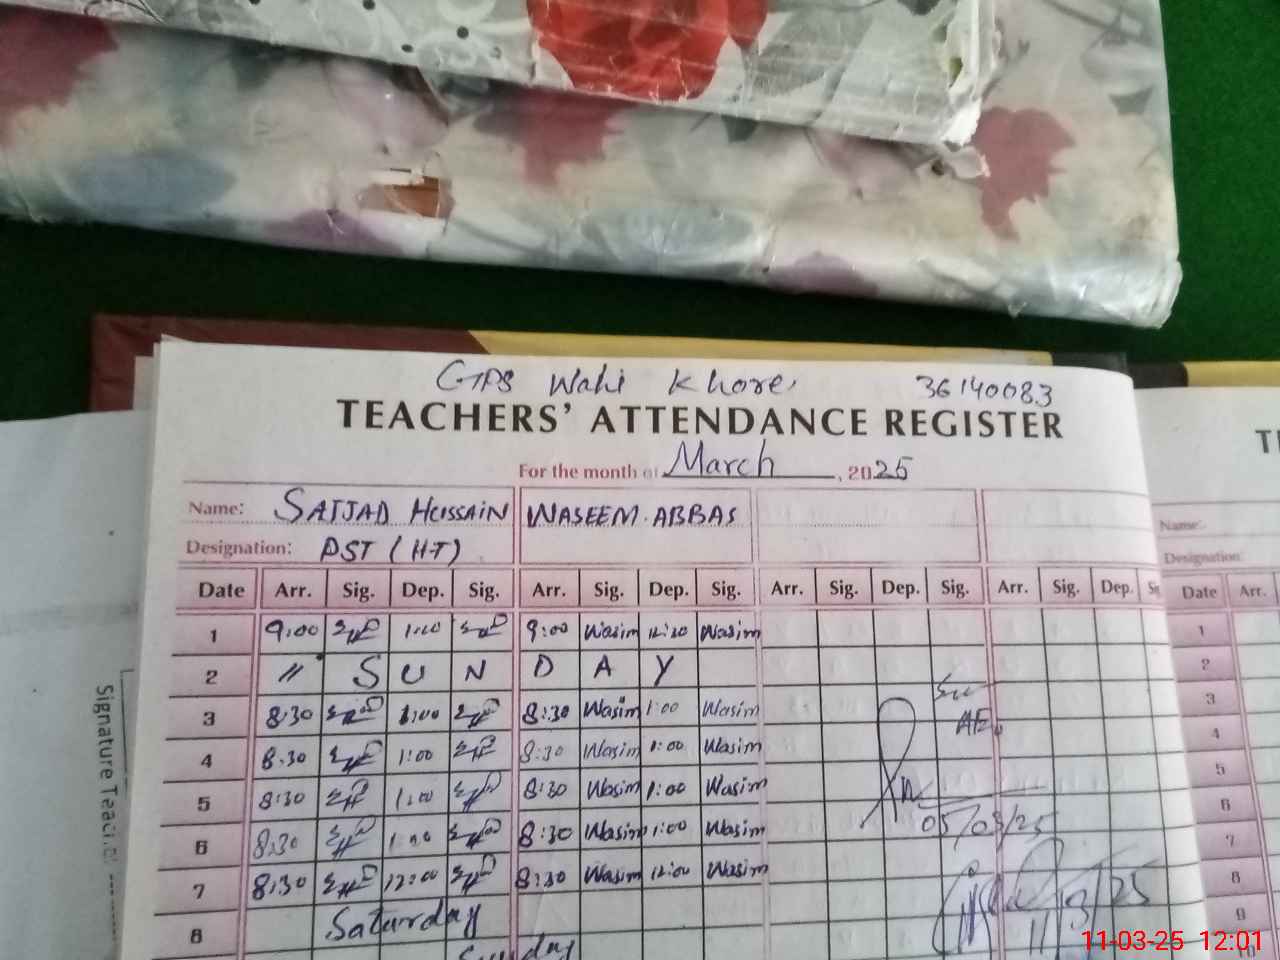 GPS Wahi Khore 36140083
TEACHERS' ATTENDANCE REGISTER
For the month of March, 2025
Name: SAJJAD HUSSAIN WASEEM ABBAS
Designation: PST (H-T)
Date Arr. Sig. Dep. Sig. Arr. Sig. Dep. Sig. Arr. Sig. Dep. Sig. Arr. Sig. Dep.
1 9:00 1:00 9:00 Wasim 12:30 Wasim
2 // S U N D A Y
3 8:30 1:00 8:30 Wasim 1:00 Wasim
4 8:30 1:00 8:30 Wasim 1:00 Wasim
5 8:30 1:00 8:30 Wasim 1:00 Wasim
6 8:30 1:00 8:30 Wasim 1:00 Wasim
7 8:30 12:00 8:30 Wasim 12:00 Wasim
8 Saturday
Sunday
05/03/25
11/3/25
Name:
Designation:
Date Arr.
1
2
3
4
5
6
7
8
9
10
Signature
11-03-25 12:01